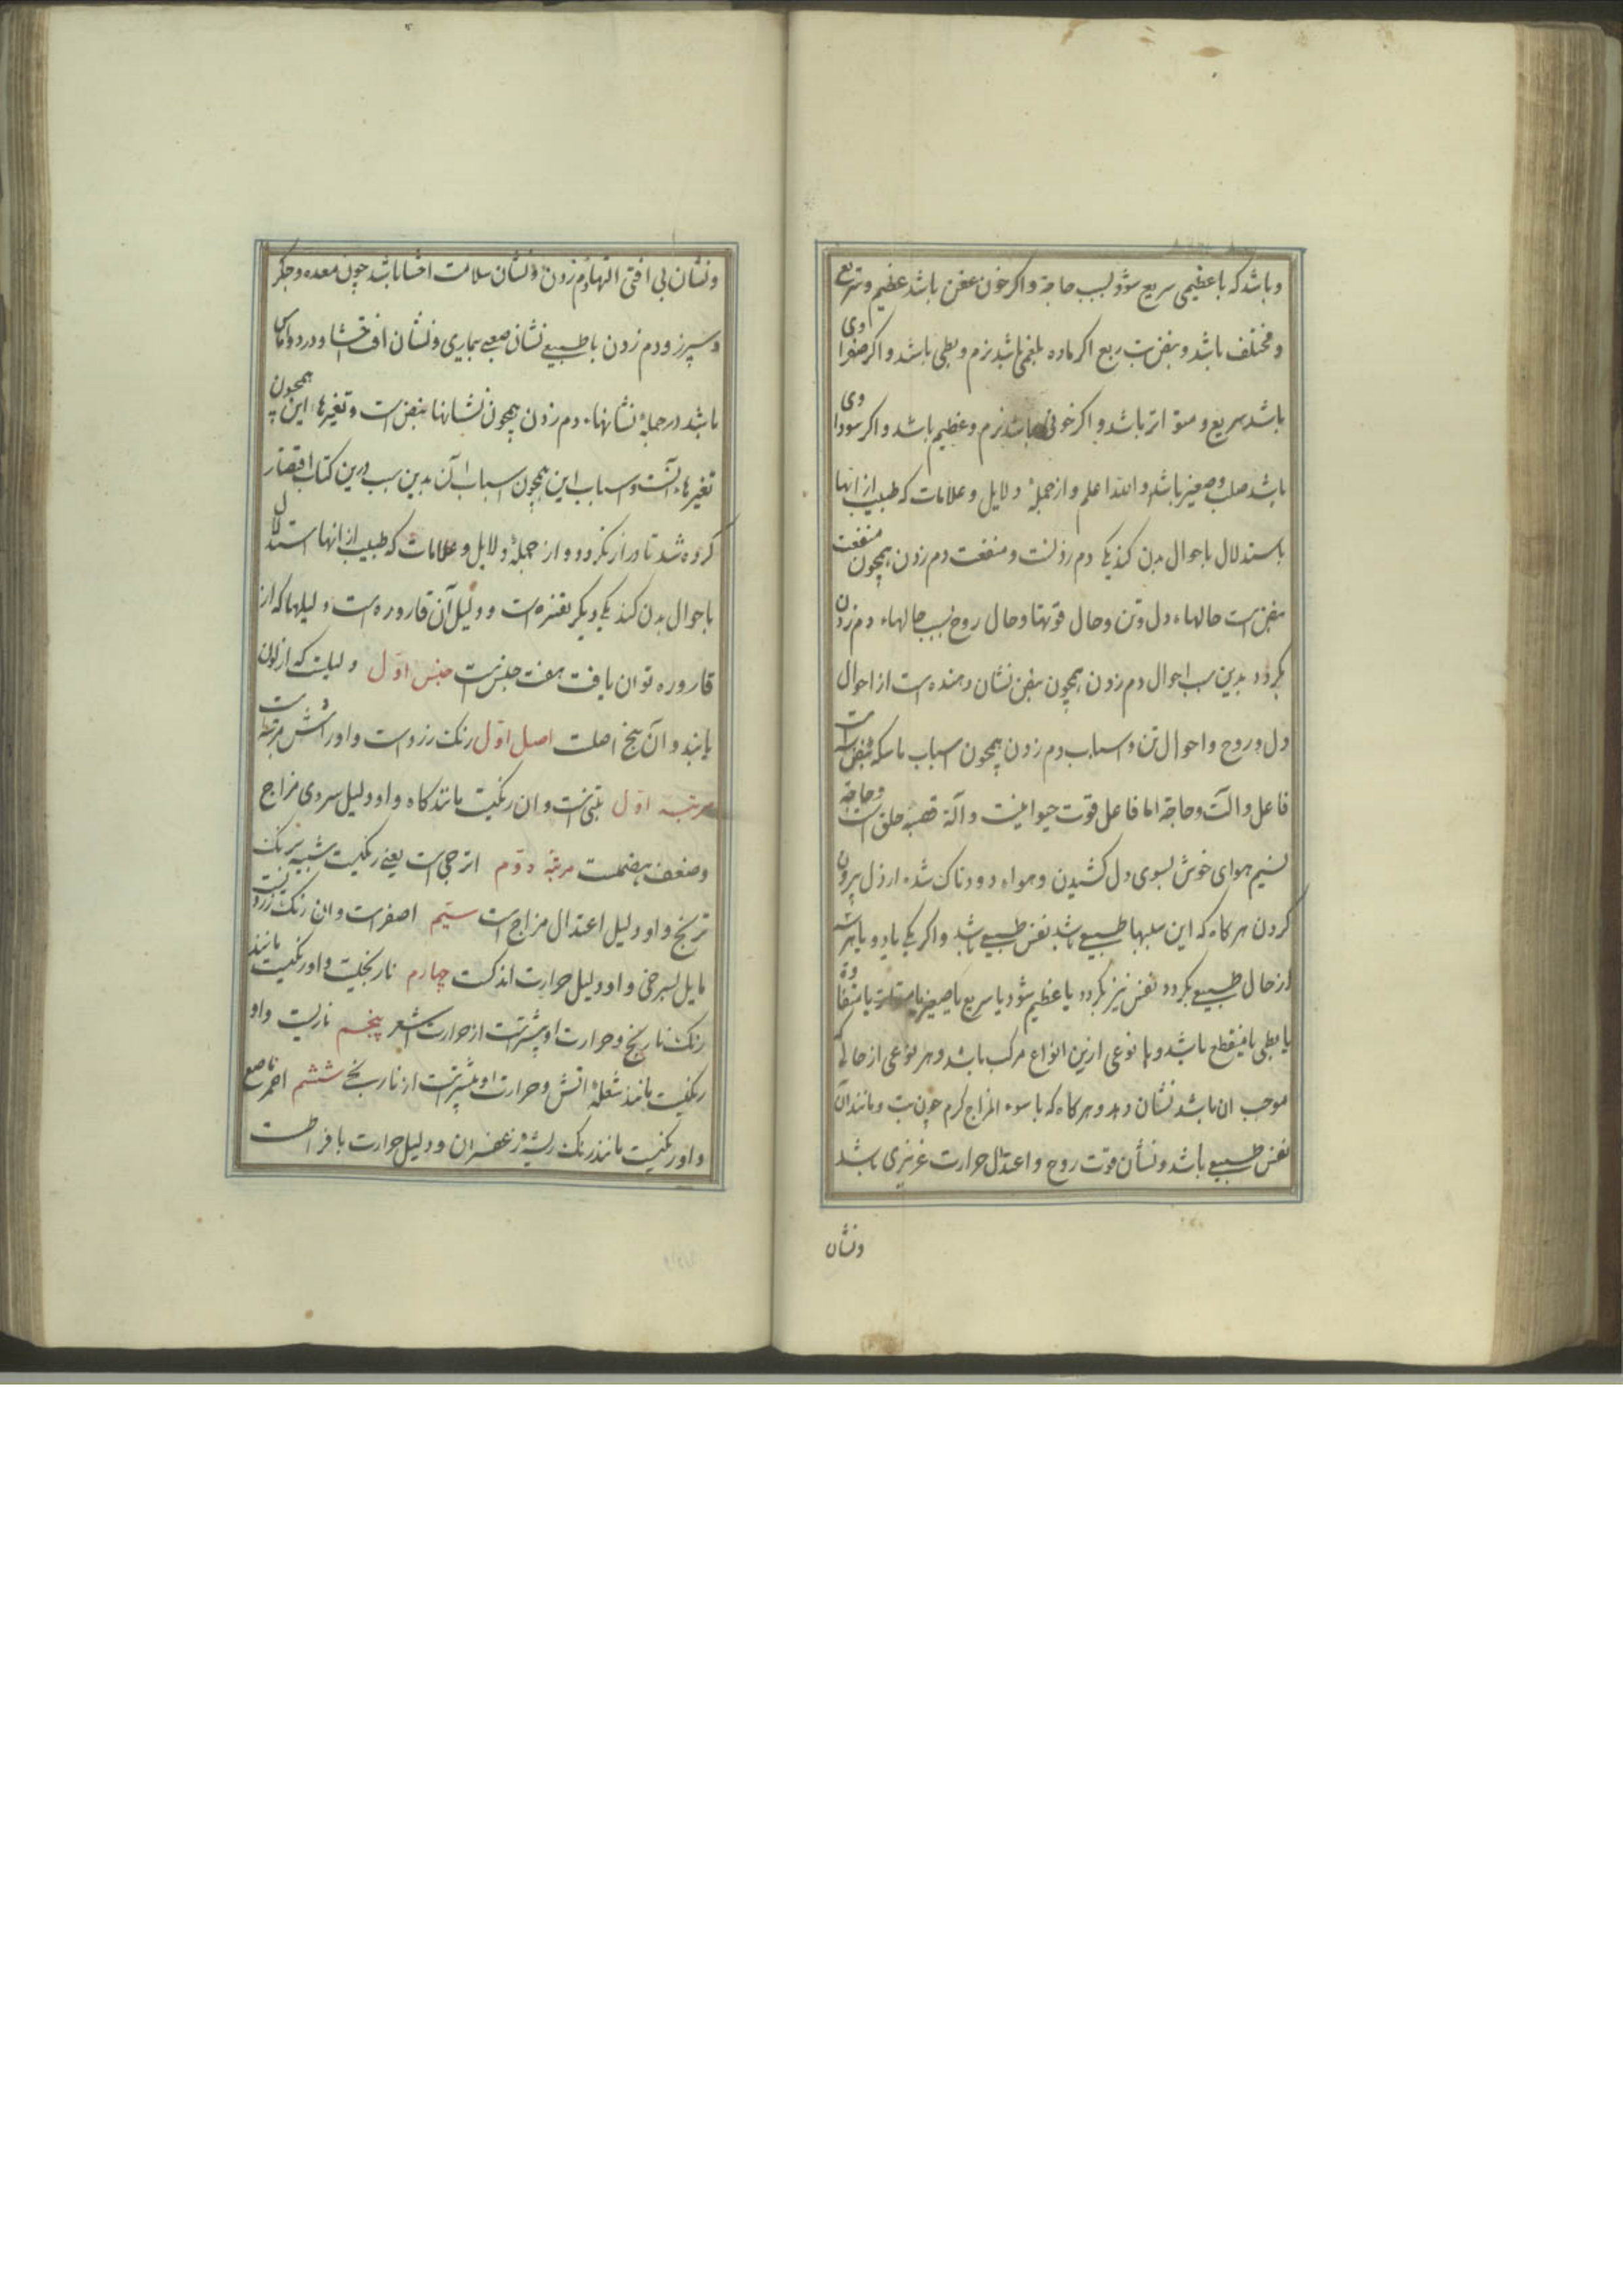 وباشد که باعظیمی سریع شود بسبب حاجة واکر خون عفن باشد عظیم وسریع
ومختلف باشد ونبض تب ربع اکر ماده بلغمی باشد نرم وبطی باشد واکر صفراوی
باشد سریع ومتواتر باشد واکر خونی باشد نرم وعظیم باشد واکر سوداوی
باشد صلب وصغیر باشد والله اعلم وازجملهٔ دلایل وعلامات که طبیب ازانها
باستدلال باحوال بدن کند یکی دم زدنست ومنفعت دم زدن همچون منفعت
نبض است حالهاء دل وتن وحال قوتها وحال روح بسبب حالهاء دم زدن
بکردد بدین سبب احوال دم زدن همچون نبض نشان دهنده است از احوال
دل وروح واحوال تن واسباب دم زدن همچون اسباب ماسکه نبض است
فاعل والت وحاجة اما فاعل قوت حیوانیست وآلة قصبهٔ حلق است وحاجة
نسیم هوای خوش بسوی دل کشیدن وهواء دودناک شده ازدل بیرون
کردن هرکاه که این سببها طبیعی باشد نفس طبیعی باشد واکر یکی یا دو یا هر سه
ازحال طبیعی بکردد نفس نیز بکردد یا عظیم شود یا سریع یا صغیر یا متفاوت
یا بطی یا منقطع باشد ویا نوعی ازین انواع مرکب باشد وهر نوعی ازحالی که
موجب ان باشد نشان دهد وهرکاه که با سوء المزاج کرم چون تب ومانند آن
نفس طبیعی باشد ونشان قوت روح واعتدال حرارت غریزی باشد
ونشان
ونشان بی افتی التهاء دم زدن ونشان سلامت احشا باشد چون معده وجکر
وسپرز ودم زدن باطبیعی نشان صعبی بیماری ونشان افت احشا ودرد واماس
باشد درجملهٔ نشانهاء دم زدن همچون نشانها نبض است وتغیرهاء این همچون
تغیرهاء آنست واسباب این همچون اسباب آن بدین سبب درین کتاب اقتصار
کرده شد تا دراز نکردد واز جملهٔ دلایل وعلامات که طبیب ازانها استدلال
باحوال بدن کند یکی دیکر تفسره است ودلیل آن قاروره است ودلیلها که از
قاروره توان یافت هفت جنس است جنس اول دلیلیست که ازلون
یابند وآن پنج اصلست اصل اول رنک زردست واورا شش مرتبه است
مرتبه اول تبنی است وان رنکیست مانند کاه واو دلیل سردی مزاج
وضعف هضمست مرتبهٔ دوم اترجی است یعنی رنکیست شبیه برنک
ترنج واو دلیل اعتدال مزاج است سیم اصفر است وان رنک زردیست
مایل بسرخی واو دلیل حرارت اندکست چهارم نارنجیست واو رنکیست مانند
رنک نارنج وحرارت او بیشترست از حرارت اشعر پنجم ناریست واو
رنکیست مانند شعلهٔ اتش وحرارت او بیشترست از نارنجی ششم احمر ناصع
واو رنکیست مانند رنک ریشهٔ زعفران ودلیل حرارت با فراطست